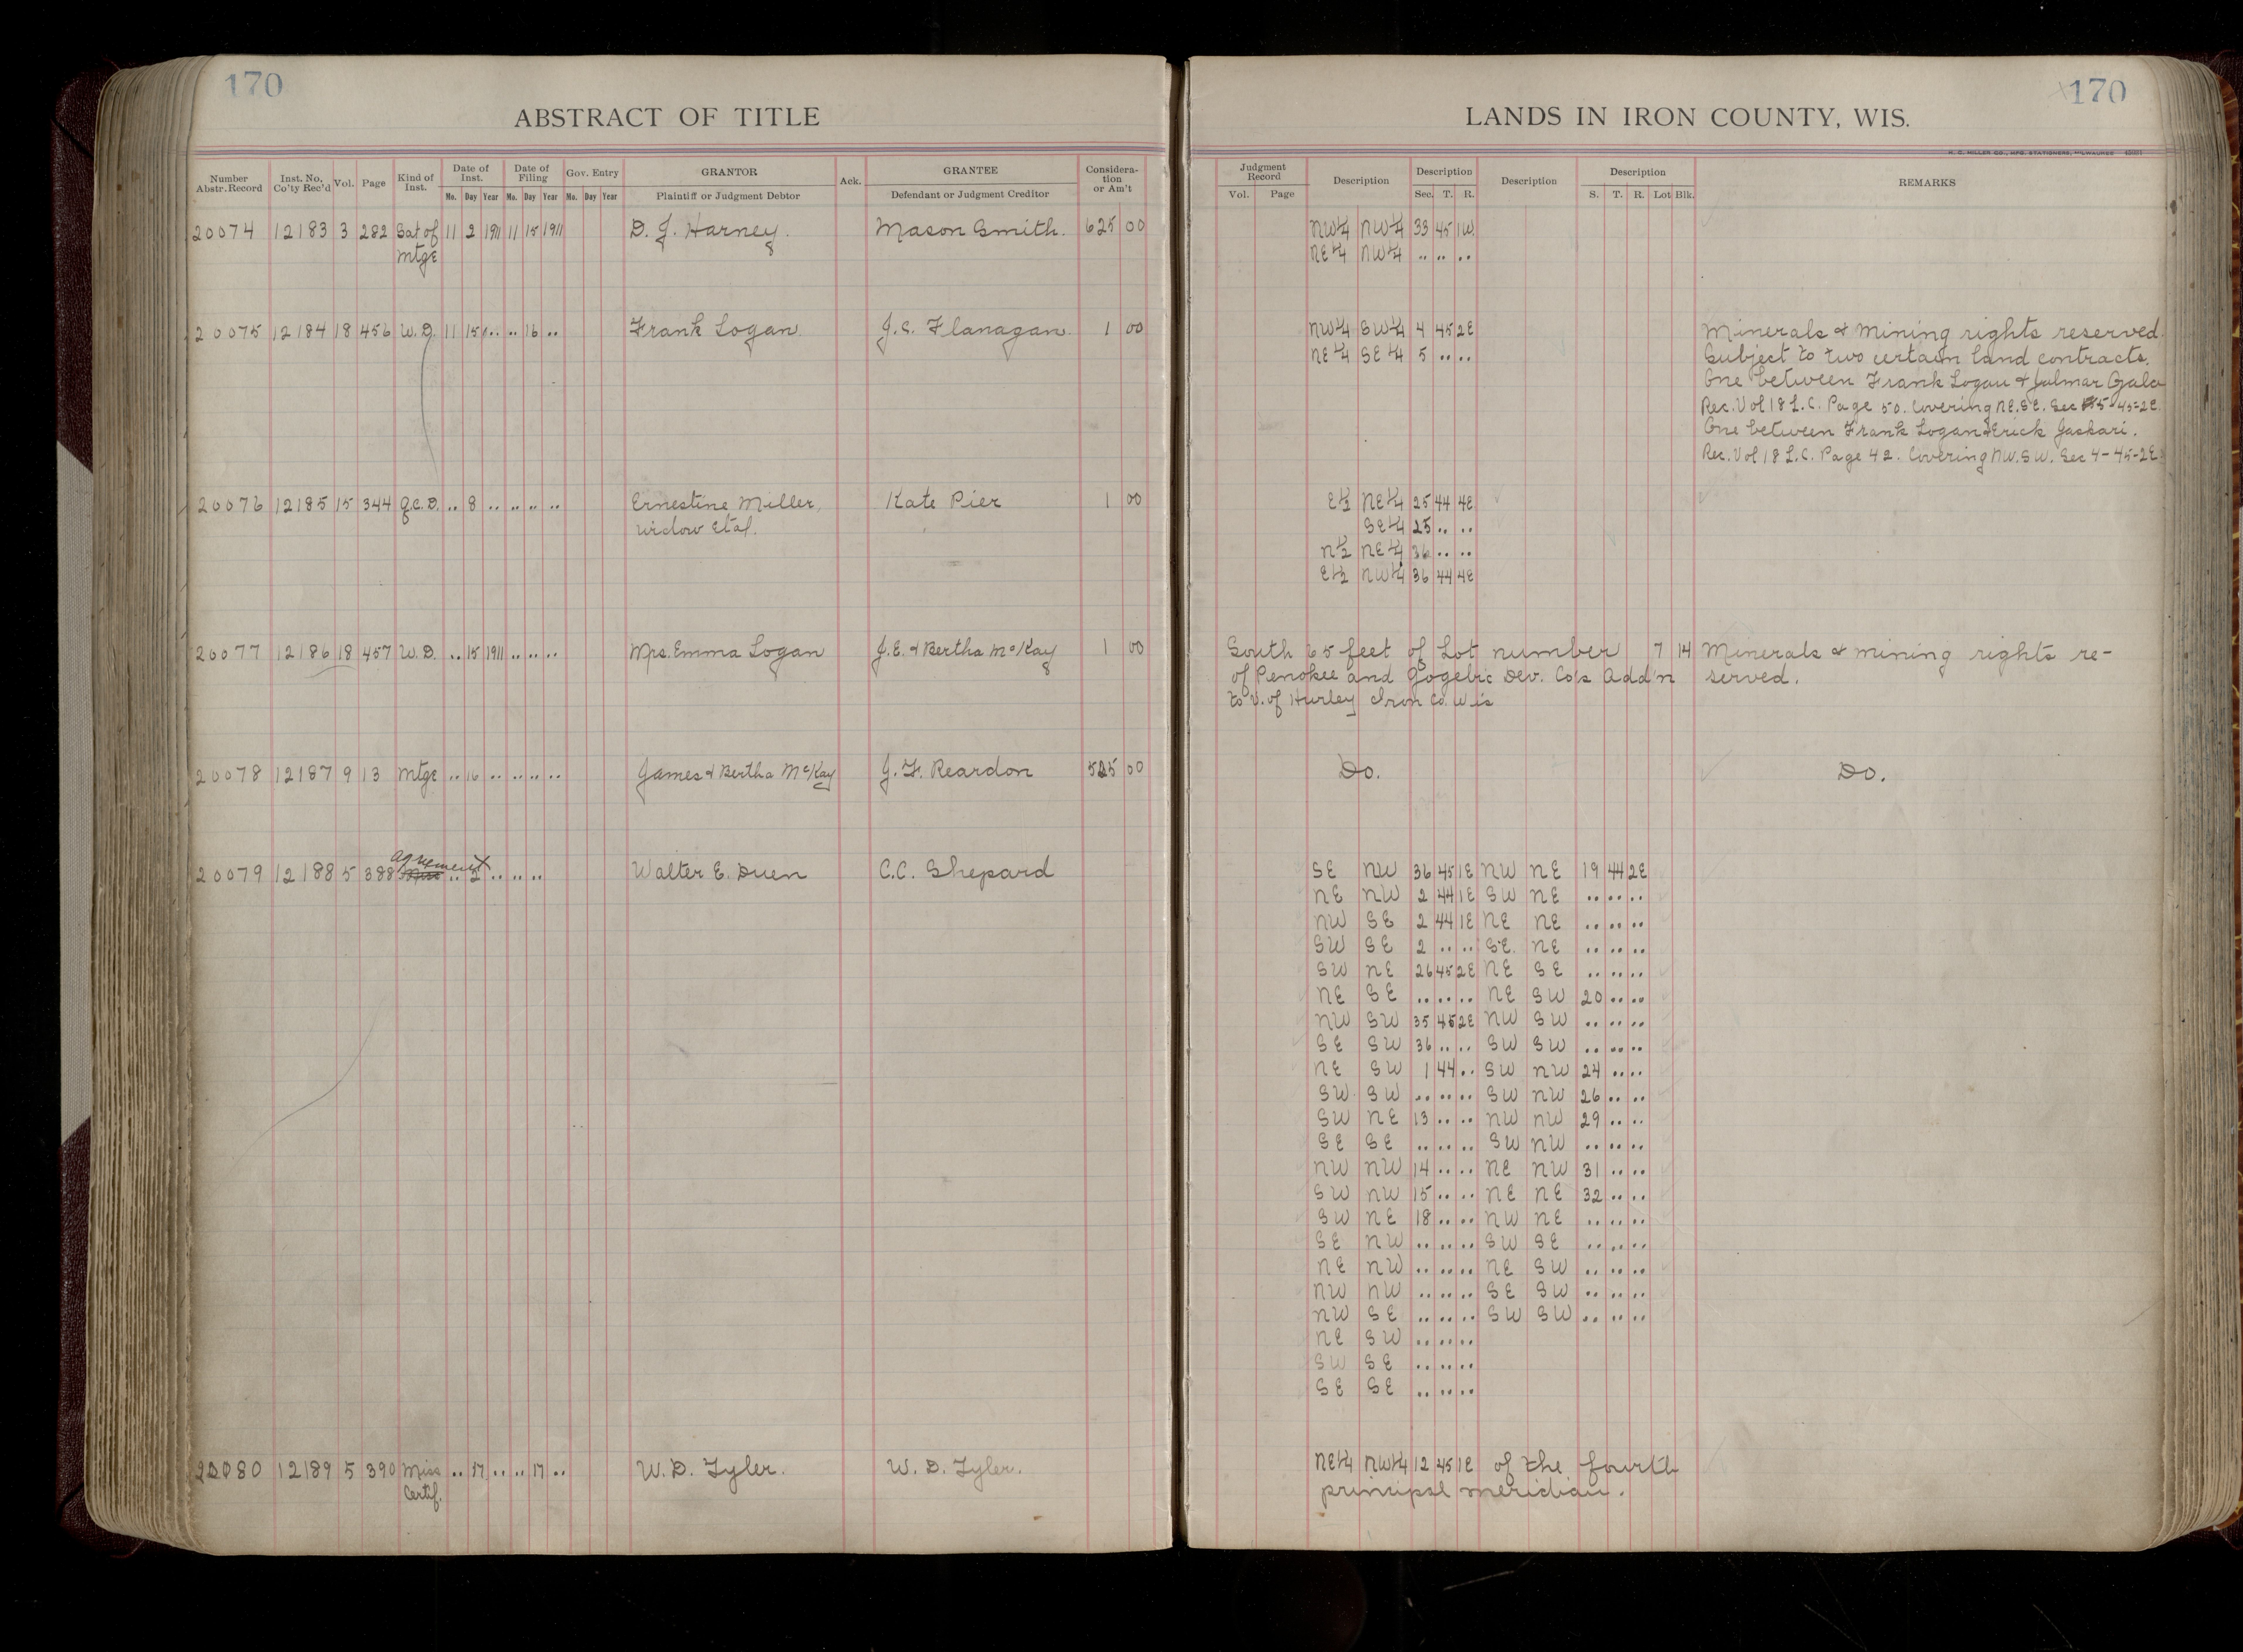 170
ABSTRACT OF TITLE
Number Abstr. Record Inst. No. Co'ty Rec'd Vol. Page Kind of Inst. Date of Inst. Date of Filing Gov. Entry GRANTOR Ack. GRANTEE Considera-tion or Am't
Mo. Day Year Mo. Day Year Mo. Day Year Plaintiff or Judgment Debtor Defendant or Judgment Creditor
20074 12183 3 282 Sat of 11 2 1911 11 15 1911 D. J. Harney. Mason Smith. 625 00
Mtge
20075 12184 18 456 W.D. 11 15 .. .. 16 .. Frank Logan. J. C. Flanagan. 1 00
20076 12185 15 344 Q.C.D. .. 8 .. .. .. .. Ernestine Miller, Kate Pier 1 00
widow et al.
20077 12186 18 457 W.D. .. 15 1911 .. .. .. Mrs. Emma Logan J.E. & Bertha McKay 1 00
20078 12187 9 13 Mtge .. 16 .. .. .. .. James & Bertha McKay J. F. Reardon 525 00
agreement
20079 12188 5 388 .. 2 .. .. .. Walter E. Duen C.C. Shepard
22080 12189 5 390 Miss .. 17 .. .. 17 .. W. D. Tyler. W. D. Tyler.
Certif.
170
LANDS IN IRON COUNTY, WIS.
H. C. MILLER CO., MFG. STATIONERS, MILWAUKEE
Judgment Record Description Description Description Description REMARKS
Vol. Page Sec. T. R. S. T. R. Lot Blk.
NW¼ NW¼ 33 45 1W.
NE¼ NW¼ .. .. ..
NW¼ SW¼ 4 45 2E Minerals & mining rights reserved.
NE¼ SE¼ 5 .. .. Subject to two certain land contracts.
One between Frank Logan & Jalmar Ojala
Rec. Vol 18 L.C. Page 50. Covering NE. SE. Sec 5-45-2E.
One between Frank Logan & Erick Jaskari.
Rec. Vol 18 L.C. Page 42. Covering NW. SW. Sec 4-45-2E.
E½ NE¼ 25 44 4E
SE¼ 25 .. ..
N½ NE¼ 36 .. ..
E½ NW¼ 36 44 4E
South 65 feet of Lot number 7 14 Minerals & mining rights re-
of Penokee and Gogebic Dev. Co's Add'n served.
to V. of Hurley Iron Co. Wis
Do. Do.
SE NW 36 45 1E NW NE 19 44 2E
NE NW 2 44 1E SW NE .. .. ..
NW SE 2 44 1E NE NE .. .. ..
SW SE 2 .. .. SE. NE .. .. ..
SW NE 26 45 2E NE SE .. .. ..
NE SE .. .. .. NE SW 20 .. ..
NW SW 35 45 2E NW SW .. .. ..
SE SW 36 .. .. SW SW .. .. ..
NE SW 1 44 .. SW NW 24 .. ..
SW SW .. .. .. SW NW 26 .. ..
SW NE 13 .. .. NW NW 29 .. ..
SE SE .. .. .. SW NW .. .. ..
NW NW 14 .. .. NE NW 31 .. ..
SW NW 15 .. .. NE NE 32 .. ..
SW NE 18 .. .. NW NE .. .. ..
SE NW .. .. .. SW SE .. .. ..
NE NW .. .. .. NE SW .. .. ..
NW NW .. .. .. SE SW .. .. ..
NW SE .. .. .. SW SW .. .. ..
NE SW .. .. ..
SW SE .. .. ..
SE SE .. .. ..
NE¼ NW¼ 12 45 1E of the fourth
principal meridian.